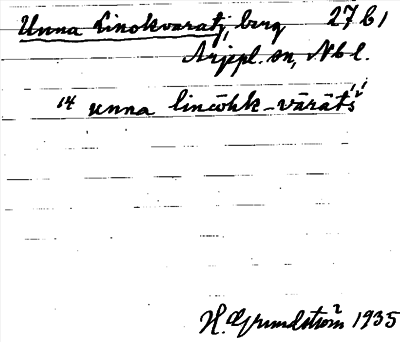 Unna Linokvaratj, berg 27 b 1
Arjepl. sn, Nbl.
14 unna linōhk-vārātš́
H. Grundström 1935